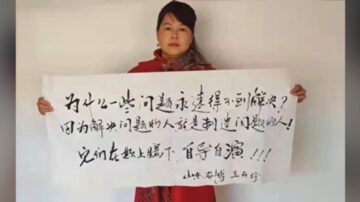 为什么一些问题永远得不到解决？
因为解决问题的人就是制造问题的人！
它们在欺上瞒下 自导自演！！！
山东